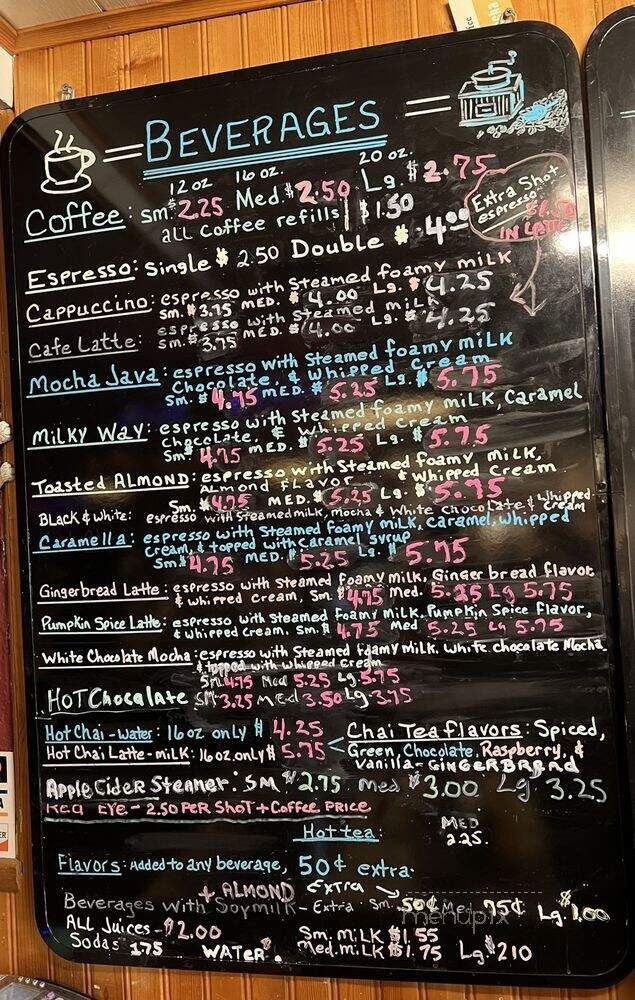 BEVERAGES
12 oz 16 oz. 20 oz.
Coffee: sm. $2.25 Med. $2.50 Lg. $2.75
all Coffee refills $1.50
Extra Shot
espresso
$1.50
IN LATTE
Espresso: Single $2.50 Double $4.00
Cappuccino: espresso with Steamed foamy milk
Sm. $3.75 MED. $4.00 Lg. $4.25
Cafe Latte: espresso with Steamed milk
Sm. $3.75 MED. $4.00 Lg. $4.25
Mocha Java: espresso with Steamed foamy milk
Chocolate, & Whipped Cream
Sm. $4.75 MED. $5.25 Lg. $5.75
Milky Way: espresso with Steamed foamy milk, Caramel
Chocolate, & Whipped Cream
Sm. $4.75 MED. $5.25 Lg. $5.75
Toasted ALMOND: espresso with Steamed foamy milk,
ALMOND FLAVOR & Whipped Cream
Sm. $4.75 MED. $5.25 Lg. $5.75
Black & White: espresso with Steamed milk, mocha & White Chocolate & Whipped Cream
Caramella: espresso with Steamed foamy milk, caramel, whipped
Cream, & topped with caramel syrup
Sm. $4.75 MED. $5.25 Lg. $5.75
Gingerbread Latte: espresso with Steamed foamy milk, Ginger bread flavor,
& Whipped Cream, Sm. $4.75 Med. 5.25 Lg 5.75
Pumpkin Spice Latte: espresso with Steamed foamy milk, Pumpkin Spice flavor,
& Whipped Cream. Sm. $4.75 Med 5.25 Lg 5.75
White Chocolate Mocha: espresso with Steamed foamy milk, white chocolate Mocha
& topped with Whipped Cream
Sm 4.75 Med 5.25 Lg 5.75
HOT Chocolate SM 3.25 Med 3.50 Lg 3.75
Hot Chai - water: 16 oz only $4.25
Hot Chai Latte - milk: 16 oz. only $5.75
Chai Tea flavors: Spiced,
Green, Chocolate, Raspberry, &
Vanilla - GINGERBREAD
Apple Cider Steamer: SM $2.75 Med $3.00 Lg 3.25
Red EYE - 2.50 PER SHOT + Coffee PRICE
Hot tea: MED 2.25.
Flavors: Added to any beverage, 50¢ extra.
+ ALMOND Extra
Beverages with Soymilk - Extra Sm. 50¢ Med. 75¢ Lg. $1.00
ALL Juices - $2.00 Sm. milk $1.55
Sodas 1.75 WATER Med. milk $1.75 Lg $2.10
menupix